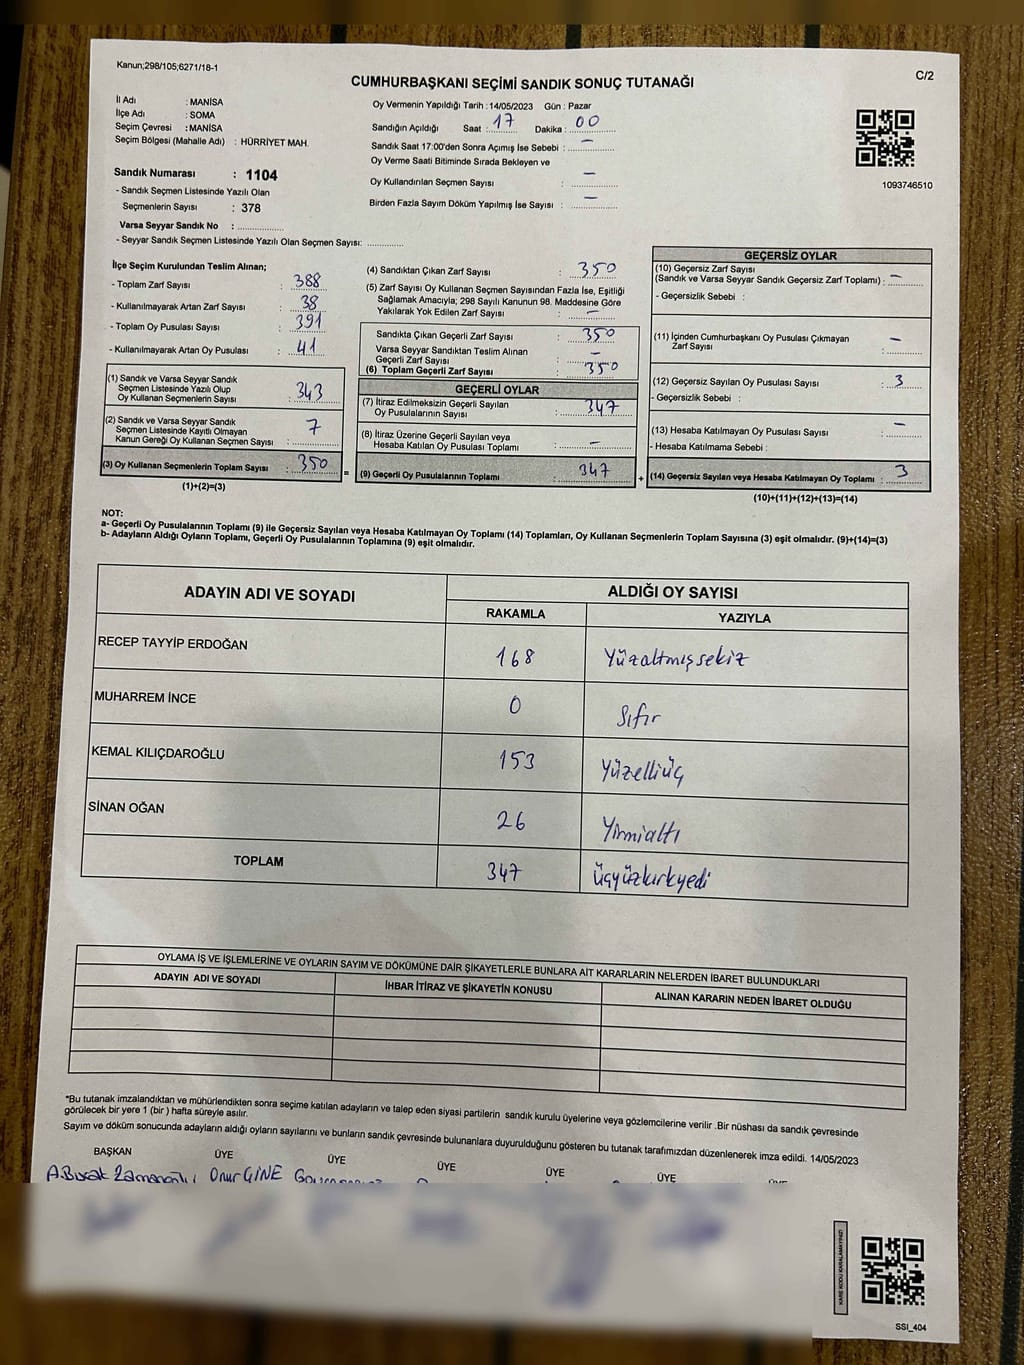 Kanun;298/105;6271/18-1
C/2
CUMHURBAŞKANI SEÇİMİ SANDIK SONUÇ TUTANAĞI
İl Adı : MANİSA
İlçe Adı : SOMA
Seçim Çevresi : MANİSA
Seçim Bölgesi (Mahalle Adı) : HÜRRİYET MAH.
Sandık Numarası : 1104
- Sandık Seçmen Listesinde Yazılı Olan
Seçmenlerin Sayısı : 378
Varsa Seyyar Sandık No : ..............
- Seyyar Sandık Seçmen Listesinde Yazılı Olan Seçmen Sayısı: ............
Oy Vermenin Yapıldığı Tarih : 14/05/2023 Gün : Pazar
Sandığın Açıldığı Saat : 17 Dakika : 00
Sandık Saat 17:00'den Sonra Açımış İse Sebebi : -
Oy Verme Saati Bitiminde Sırada Bekleyen ve
Oy Kullandırılan Seçmen Sayısı : -
Birden Fazla Sayım Döküm Yapılmış İse Sayısı : -
1093746510
İlçe Seçim Kurulundan Teslim Alınan;
- Toplam Zarf Sayısı : 388
- Kullanılmayarak Artan Zarf Sayısı : 38
- Toplam Oy Pusulası Sayısı : 391
- Kullanılmayarak Artan Oy Pusulası : 41
(1) Sandık ve Varsa Seyyar Sandık
Seçmen Listesinde Yazılı Olup
Oy Kullanan Seçmenlerin Sayısı : 343
(2) Sandık ve Varsa Seyyar Sandık
Seçmen Listesinde Kayıtlı Olmayan
Kanun Gereği Oy Kullanan Seçmen Sayısı : 7
(3) Oy Kullanan Seçmenlerin Toplam Sayısı : 350
(1)+(2)=(3)
=
(4) Sandıktan Çıkan Zarf Sayısı : 350
(5) Zarf Sayısı Oy Kullanan Seçmen Sayısından Fazla İse, Eşitliği
Sağlamak Amacıyla; 298 Sayılı Kanunun 98. Maddesine Göre
Yakılarak Yok Edilen Zarf Sayısı : -
Sandıkta Çıkan Geçerli Zarf Sayısı : 350
Varsa Seyyar Sandıktan Teslim Alınan
Geçerli Zarf Sayısı : -
(6) Toplam Geçerli Zarf Sayısı : 350
GEÇERLİ OYLAR
(7) İtiraz Edilmeksizin Geçerli Sayılan
Oy Pusulalarının Sayısı : 347
(8) İtiraz Üzerine Geçerli Sayılan veya
Hesaba Katılan Oy Pusulası Toplamı : -
(9) Geçerli Oy Pusulalarının Toplamı : 347
+
GEÇERSİZ OYLAR
(10) Geçersiz Zarf Sayısı
(Sandık ve Varsa Seyyar Sandık Geçersiz Zarf Toplamı) : -
- Geçersizlik Sebebi :
(11) İçinden Cumhurbaşkanı Oy Pusulası Çıkmayan
Zarf Sayısı : -
(12) Geçersiz Sayılan Oy Pusulası Sayısı : 3
- Geçersizlik Sebebi :
(13) Hesaba Katılmayan Oy Pusulası Sayısı : -
- Hesaba Katılmama Sebebi :
(14) Geçersiz Sayılan veya Hesaba Katılmayan Oy Toplamı : 3
(10)+(11)+(12)+(13)=(14)
NOT:
a- Geçerli Oy Pusulalarının Toplamı (9) ile Geçersiz Sayılan veya Hesaba Katılmayan Oy Toplamı (14) Toplamları, Oy Kullanan Seçmenlerin Toplam Sayısına (3) eşit olmalıdır. (9)+(14)=(3)
b- Adayların Aldığı Oyların Toplamı, Geçerli Oy Pusulalarının Toplamına (9) eşit olmalıdır.
ADAYIN ADI VE SOYADI ALDIĞI OY SAYISI
RAKAMLA YAZIYLA
RECEP TAYYİP ERDOĞAN 168 Yüzaltmışsekiz
MUHARREM İNCE 0 Sıfır
KEMAL KILIÇDAROĞLU 153 Yüzelliüç
SİNAN OĞAN 26 Yirmialtı
TOPLAM 347 üçyüzkırkyedi
OYLAMA İŞ VE İŞLEMLERİNE VE OYLARIN SAYIM VE DÖKÜMÜNE DAİR ŞİKAYETLERLE BUNLARA AİT KARARLARIN NELERDEN İBARET BULUNDUKLARI
ADAYIN ADI VE SOYADI İHBAR İTİRAZ VE ŞİKAYETİN KONUSU ALINAN KARARIN NEDEN İBARET OLDUĞU
*Bu tutanak imzalandıktan ve mühürlendikten sonra seçime katılan adayların ve talep eden siyasi partilerin sandık kurulu üyelerine veya gözlemcilerine verilir .Bir nüshası da sandık çevresinde
görülecek bir yere 1 (bir ) hafta süreyle asılır.
Sayım ve döküm sonucunda adayların aldığı oyların sayılarını ve bunların sandık çevresinde bulunanlara duyurulduğunu gösteren bu tutanak tarafımızdan düzenlenerek imza edildi. 14/05/2023
BAŞKAN ÜYE ÜYE ÜYE ÜYE ÜYE
Onur GİNE
KARE KODU KARALAMAYINIZ!
SSI_404